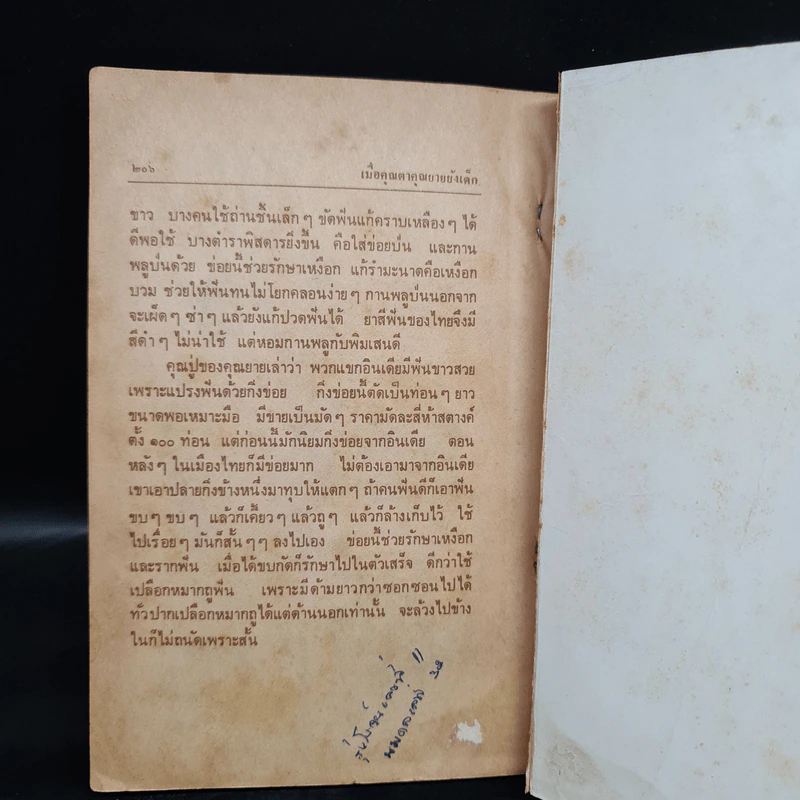 ๒๐๖ เมื่อคุณตาคุณยายยังเด็ก
ขาว บางคนใช้ถ่านชิ้นเล็ก ๆ ขัดฟันแก้คราบเหลือง ๆ ได้
ดีพอใช้ บางตำราพิสดารยิ่งขึ้น คือใส่ข่อยป่น และกาน
พลูป่นด้วย ข่อยนี้ช่วยรักษาเหงือก แก้รำมะนาดคือเหงือก
บวม ช่วยให้ฟันทนไม่โยกคลอนง่าย ๆ กานพลูป่นนอกจาก
จะเผ็ด ๆ ซ่า ๆ แล้วยังแก้ปวดฟันได้ ยาสีฟันของไทยจึงมี
สีดำ ๆ ไม่น่าใช้ แต่หอมกานพลูกับพิมเสนดี
คุณปู่ของคุณยายเล่าว่า พวกแขกอินเดียมีฟันขาวสวย
เพราะแปรงฟันด้วยกิ่งข่อย กิ่งข่อยนี้ตัดเป็นท่อน ๆ ยาว
ขนาดพอเหมาะมือ มีขายเป็นมัด ๆ ราคามัดละสี่ห้าสตางค์
ตั้ง ๑๐๐ ท่อน แต่ก่อนนี้มักนิยมกิ่งข่อยจากอินเดีย ตอน
หลัง ๆ ในเมืองไทยก็มีข่อยมาก ไม่ต้องเอามาจากอินเดีย
เขาเอาปลายกิ่งข้างหนึ่งมาทุบให้แตก ๆ ถ้าคนฟันดีก็เอาฟัน
ขบ ๆ ขบ ๆ แล้วก็เคี้ยว ๆ แล้วถู ๆ แล้วก็ล้างเก็บไว้ ใช้
ไปเรื่อย ๆ มันก็สั้น ๆ ๆ ลงไปเอง ข่อยนี้ช่วยรักษาเหงือก
และรากฟัน เมื่อได้ขบกัดก็รักษาไปในตัวเสร็จ ดีกว่าใช้
เปลือกหมากถูฟัน เพราะมีด้ามยาวกว่าซอกซอนไปได้
ทั่วปากเปลือกหมากถูได้แต่ด้านนอกเท่านั้น จะล้วงไปข้าง
ในก็ไม่ถนัดเพราะสั้น